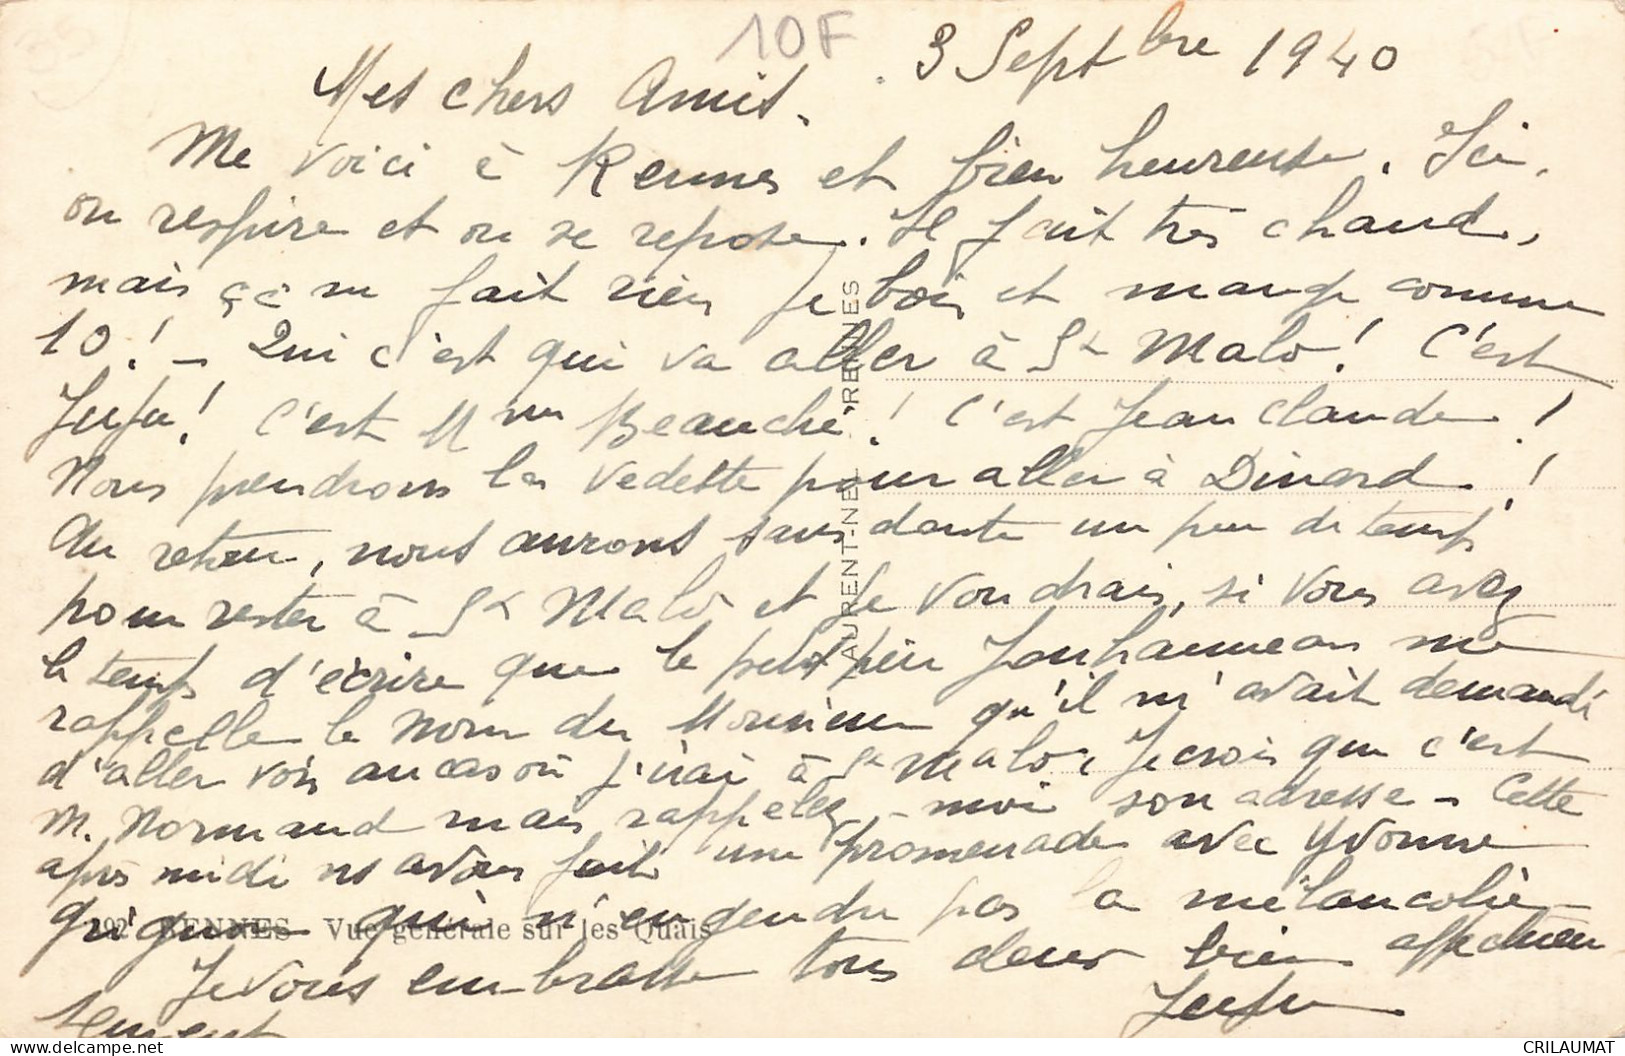 10F
3 Septbre 1940
Mes chers Amis.
Me voici à Rennes et bien heureuse. Ici,
on respire et on se repose. Il fait très chaud,
mais çà n fait rien je bois et mange comme
10! - Qui c'est qui va aller à St Malo! C'est
Jufu! C'est Mme Beauché! C'est Jean Claude!
Nous prendrons la vedette pour aller à Dinard!
Au retour, nous aurons sans doute un peu de temps
pour rester à St Malo et je voudrais, si vous avez
le temps d'écrire que le petit père Jouhanneau me
rappelle le nom du Monsieur qu'il m'avait demandé
d'aller voir au cas où j'irai à St Malo, Je crois que c'est
M. Normand mais rappelez-moi son adresse - Cette
après midi ns avons fait une promenade avec Yvonne
qui n'engendre pas la mélancolie
Je vous embrasse tous deux bien affectueu
sement
Jufu
LAURENT-NEL RENNES
292 RENNES - Vue générale sur les Quais
CRILAUMAT